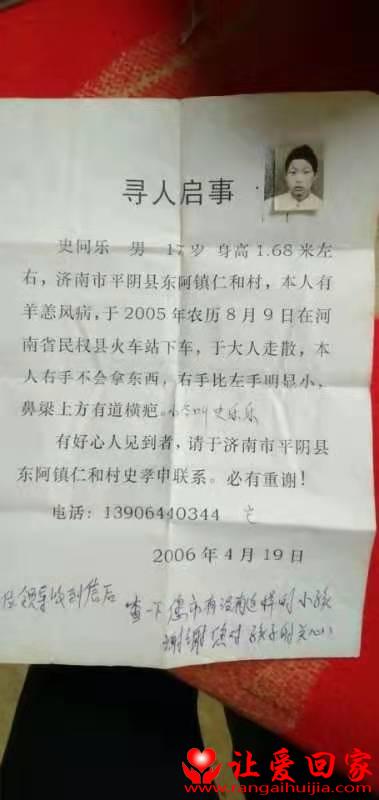 寻人启事
史问乐 男 17岁 身高1.68米左
右，济南市平阴县东阿镇仁和村，本人有
羊恙风病，于2005年农历8月9日在河
南省民权县火车站下车，于大人走散，本
人右手不会拿东西，右手比左手明显小，
鼻梁上方有道横疤。小名叫史乐乐
有好心人见到者，请于济南市平阴县
东阿镇仁和村史孝申联系。必有重谢！
电话：13906440344
2006年4月19日
领导收到信后
查一下您市有没有这样的小孩
谢谢您对孩子的关心
让爱回家
www.rangaihuijia.com